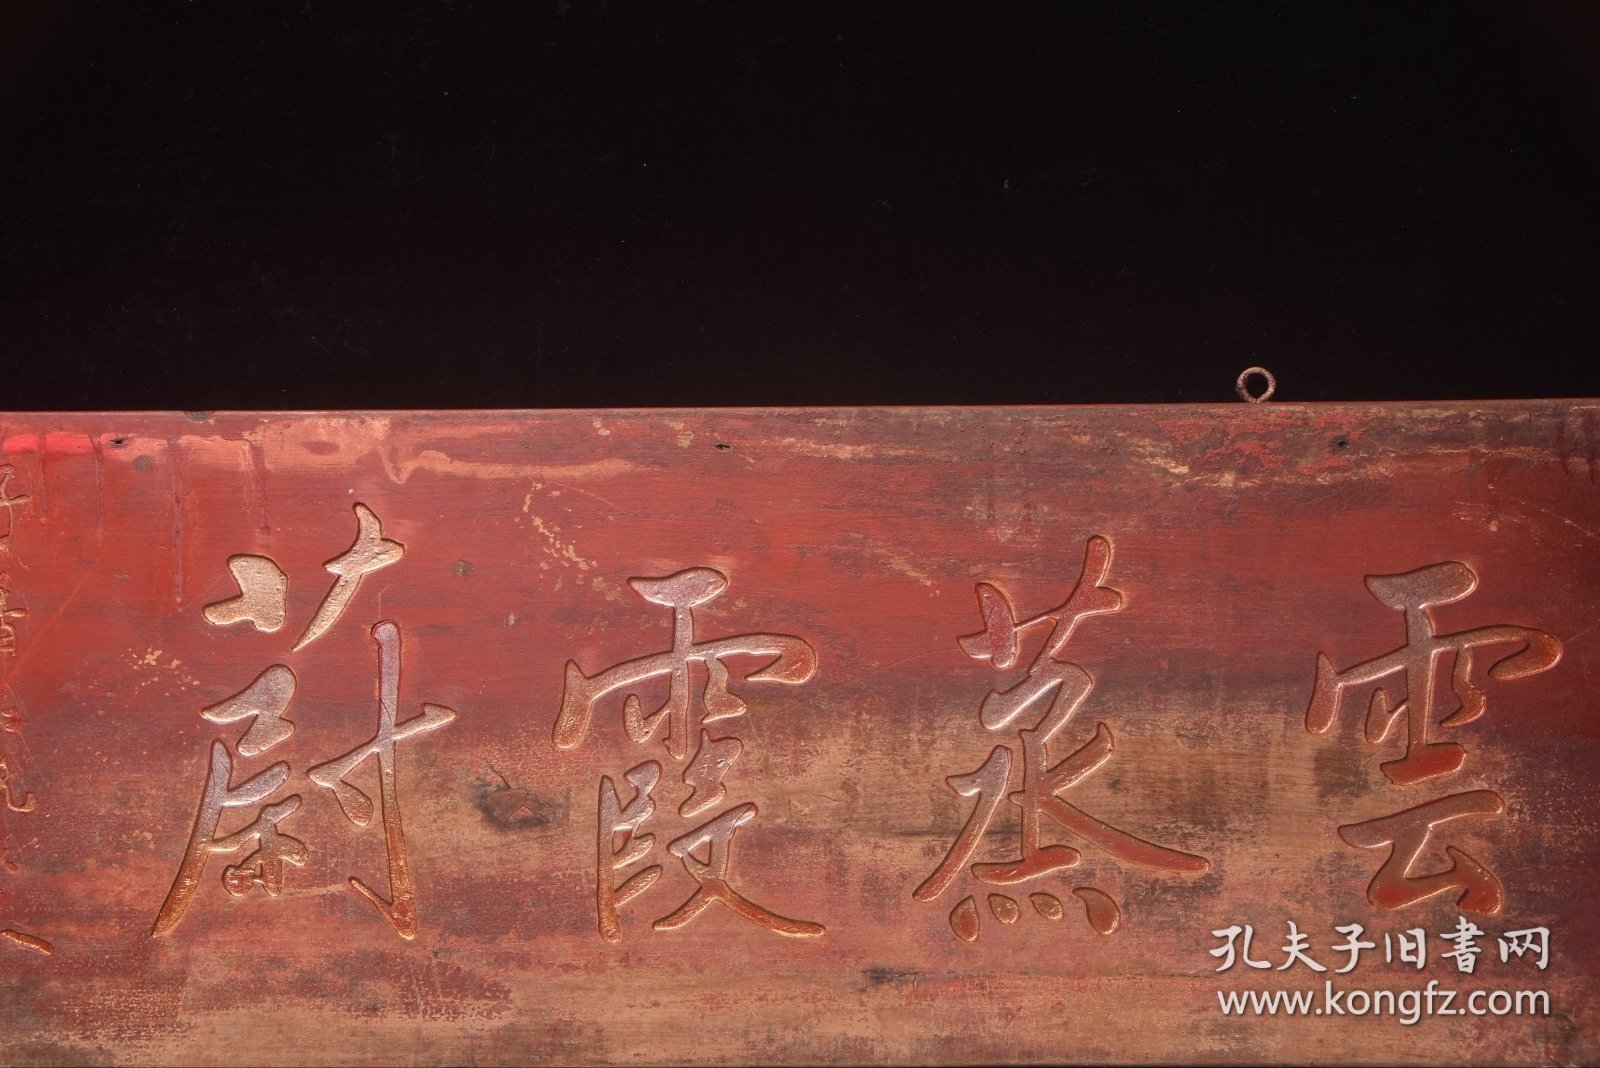 雲蒸霞蔚
孔夫子旧書网
www.kongfz.com